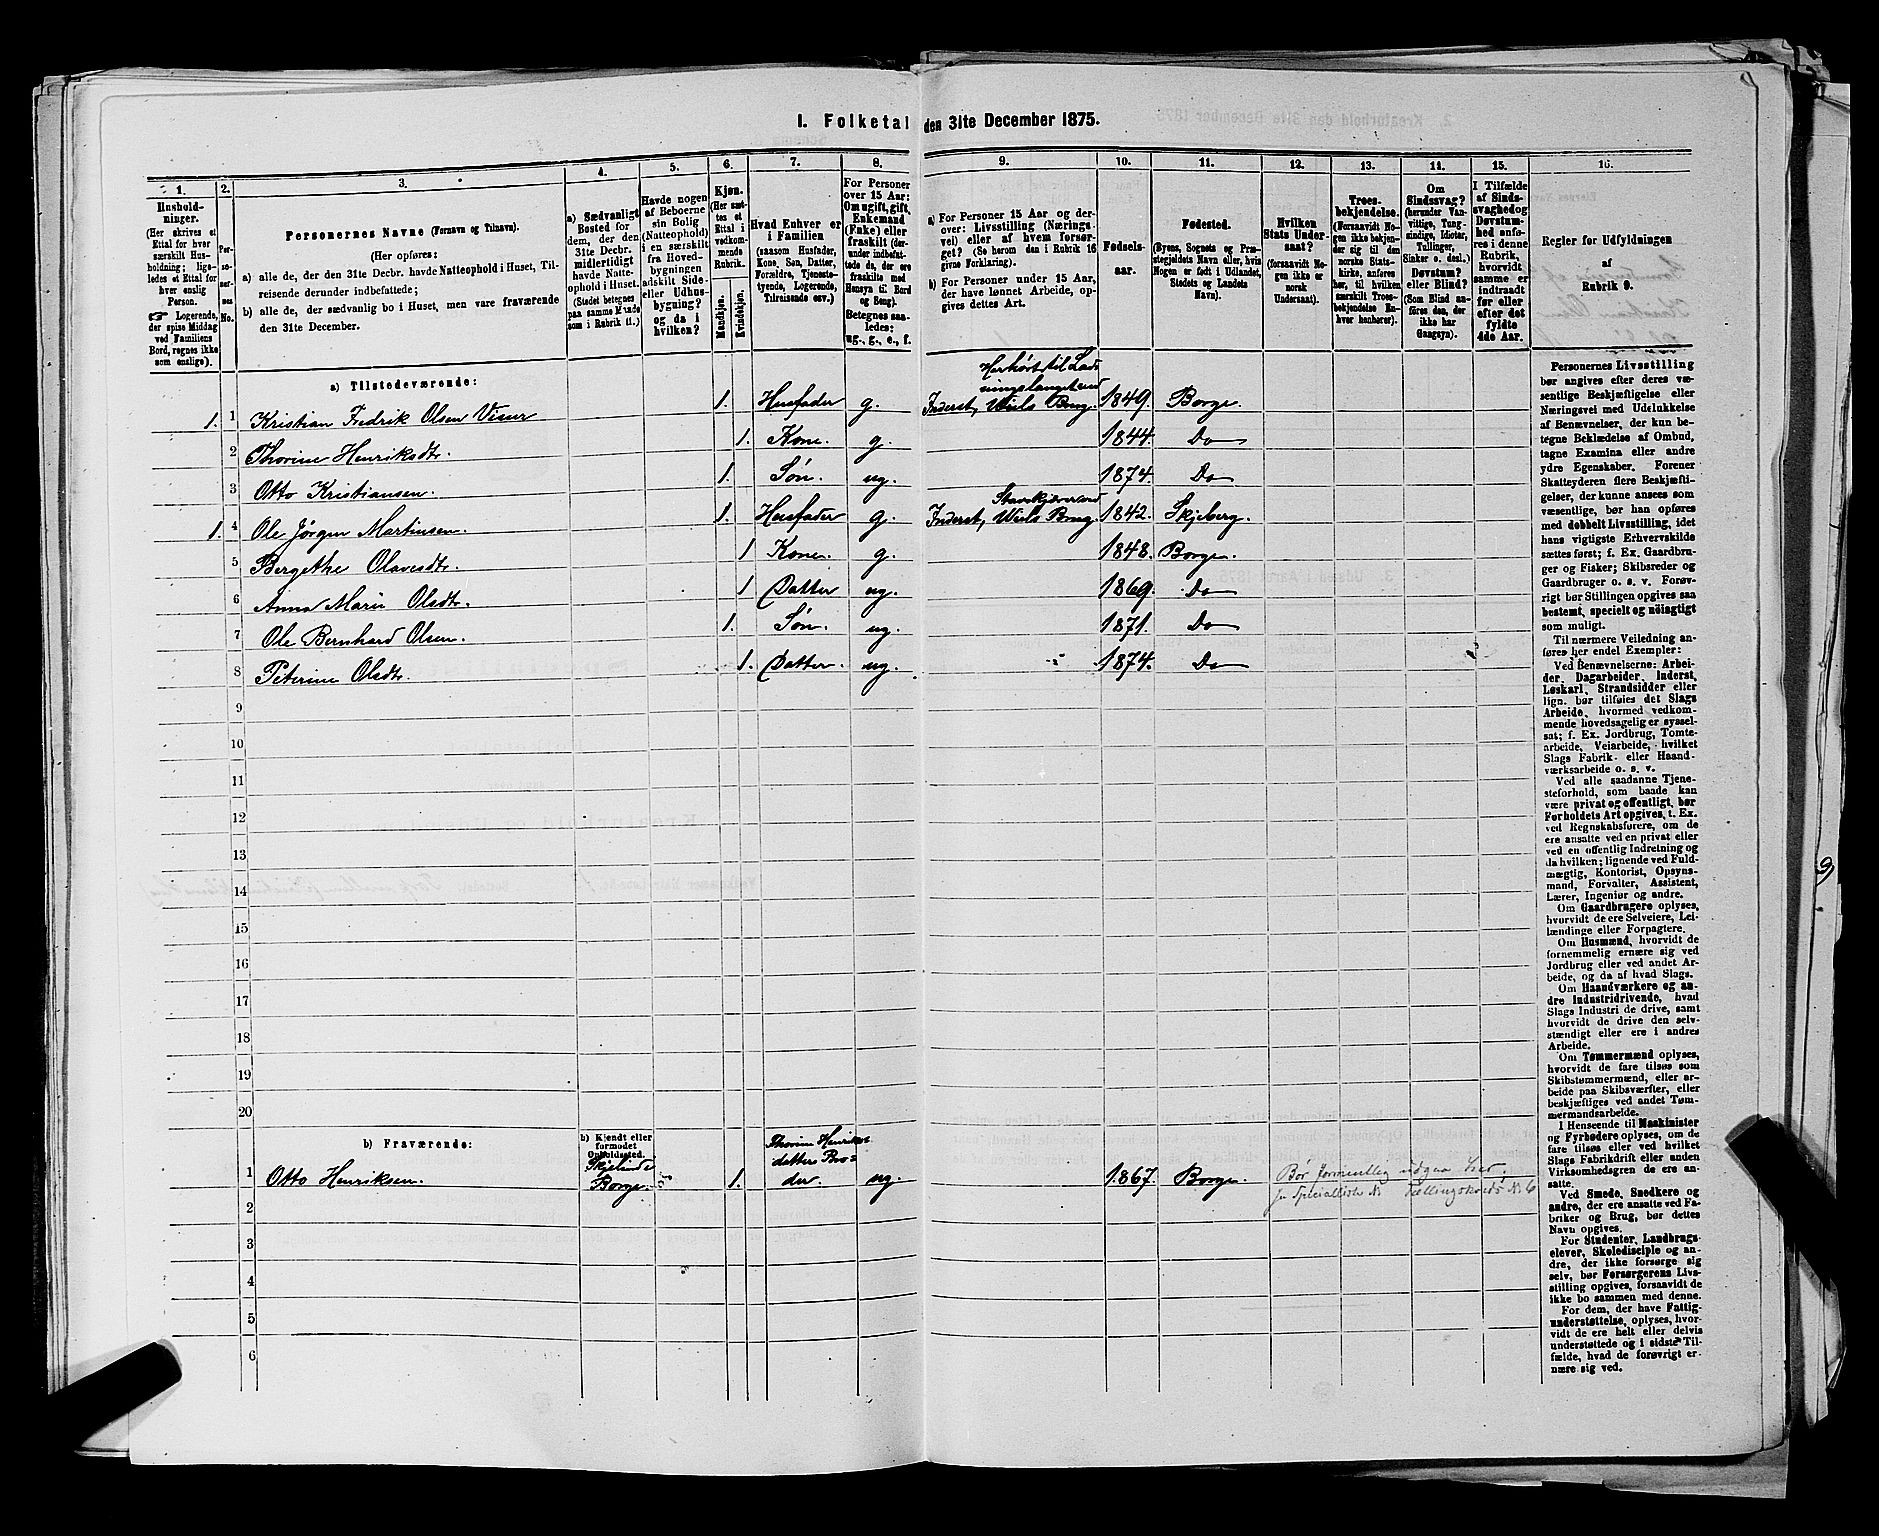 I. Folketal den 31te December 1875.
1. 2. 3. 4. 5. 6. 7. 8. 9. 10. 11. 12. 13. 14. 15. 16.
Hushold-
ninger.
(Her skrives et
Ettal for hver
særskilt Hus-
holdning; lige-
ledes et Ettal for
hver enslig
Person.
☞ Logerende,
der spise Middag
ved Familiens
Bord, regnes ikke
som enslige).
Per-
so-
ner-
nes
No.
Personernes Navne (Fornavn og Tilnavn).
(Her opføres:
a) alle de, der den 31te Decbr. havde Natteophold i Huset, Til-
reisende derunder indbefattede;
b) alle de, der sædvanlig bo i Huset, men vare fraværende
den 31te December.
a) Sædvanligt
Bosted for
dem, der den
31te Decbr.
midlertidigt
havde Natte-
ophold i Huset.
(Stedet betegnes
paa samme Maade
som i Rubrik 11.)
Havde nogen
af Beboerne
sin Bolig
(Natteophold)
i en særskilt
fra Hoved-
bygningen
adskilt Side-
eller Udhus-
bygning?
og da i
hvilken?
Kjøn.
(Her sæt-
tes et
Ettal i
vedkom-
mende
Rubrik.
Mandkjøn.
Kvindekjøn.
Hvad Enhver er
i Familien
(saasom Husfader,
Kone, Søn, Datter,
Forældre, Tjeneste-
tyende, Logerende,
Tilreisende osv.)
For Personer
over 15 Aar:
Om ugift, gift,
Enkemand
(Enke) eller
fraskilt (der-
under indbefat-
tede da, der ere
fraskilte med
Hensyn til Bord
og Seng).
Betegnes saa-
ledes:
ug., g., e., f.
a) For Personer 15 Aar og der-
over: Livsstilling (Nærings-
vei) eller af hvem forsør-
get? (Se herom den i Rubrik 16
givne Forklaring).
b) For Personer under 15 Aar,
der have lønnet Arbeide, op-
gives dettes Art.
Fødsels-
aar.
Fødested.
(Byens, Sognets og Præ-
stegjeldets Navn eller, hvis
Nogen er født i Udlandet,
Stedets og Landets
Navn).
Hvilken
Stats Under-
saat?
(forsaavidt No-
gen ikke er
norsk
Undersaat).
Troes-
bekjendelse.
(Forsaavidt No-
gen ikke bekjen-
der sig til den
norske Stats-
kirke, anføres
her, til hvilken
særskilt Troes-
bekjendelse En-
hver henhører).
Om
Sindssvag?
(herunder Van-
vittige, Tung-
sindige, Idioter,
Tullinger,
Sinker o. desl.)
Døvstum?
eller Blind?
(Som Blind an-
føres den, der
ikke har
Gangsyn).
I Tilfælde
af Sinds-
svaghed og
Døvstum-
hed anfø-
res i denne
Rubrik,
hvorvidt
samme er
indtraadt
før eller
efter det
fyldte
4de Aar.
Regler for Udfyldningen
af
Rubrik 9.
a) Tilstedeværende:
1. 1 Kristian Fredrik Olsen Viser 1. Husfader g. Inderst, 1849. Borge.
2 Thorine Henriksdtr. 1. Kone. g. 1844. Do
3 Otto Kristiansen. 1. Søn. ug. 1874. Do
1. 4 Ole Jörgen Martinsen. 1. Husfader g. Inderst, 1842. Skjeberg.
5 Bergethe Olavesdtr. 1 Kone. g. 1848. Borge.
6 Anna Marie Olsdtr. 1 Datter ug. 1869. Do
7 Ole Bernhard Olsen. 1. Søn. ug. 1871. Do
8 Peterine Olsdtr. 1. Datter. ug. 1874. Do
9
10
11
12
13
14
15
16
17
18
19
20
b) Fraværende:
b) Kjendt eller
formodet
Opholdssted.
1 Otto Henriksen. Borge. 1. Thorine Henriks-
datters Bro-
der. ug. 1867. Borge. Bør formentlig udgaa her.
2
3
4
5
6
Personernes Livsstilling
bør angives efter deres væ-
sentlige Beskjæftigelse eller
Næringsvei med Udelukkelse
af Benævnelser, der kun be-
tegne Beklædelse af Ombud,
tagne Examina eller andre
ydre Egenskaber. Forener
Skatteyderen flere Beskjæfti-
gelser, der kunne ansees som
væsentlige, bør han opføres
med dobbelt Livsstilling, idet
hans vigtigste Erhvervskilde
sættes først; f. Ex. Gaardbru-
ger og Fisker; Skibsreder og
Gaardbruger o. s. v. Forøv-
rigt bør Stillingen opgives saa
bestemt, specielt og nöiagtigt
som muligt.
Til nærmere Veiledning an-
føres her endel Exempler:
Ved Benævnelserne: Arbei-
der, Dagarbeider, Inderst,
Løskarl, Strandsidder eller
lign. bør tilføies det Slags
Arbeide, hvormed vedkom-
mende hovedsagelig er syssel-
sat; f. Ex. Jordbrug, Tomte-
arbeide, Veiarbeide, hvilket
Slags Fabrik- eller Haand-
værksarbeide o. s. v.
Ved alle saadanne Tjene-
steforhold, som baade kan
være privat og offentligt, bør
Forholdets Art opgives, t. Ex.
ved Regnskabsførere, om de
ere ansatte ved en privat eller
ved en offentlig Indretning og
da hvilken; lignende ved Fuld-
mægtig, Kontorist, Opsyns-
mand, Forvalter, Assistent,
Lærer, Ingeniør og andre.
Om Gaardbrugere oplyses,
hvorvidt de ere Selveiere, Lei-
lændinge eller Forpagtere.
Om Husmænd, hvorvidt de
fornemmelig ernære sig ved
Jordbrug eller ved andet Ar-
beide, og da af hvad Slags.
Om Haandværkere og an-
dre Industridrivende, hvad
Slags Industri de drive, samt
hvorvidt de drive den selv-
stændigt eller ere i andres
Arbeide.
Om Tømmermænd oplyses,
hvorvidt de fare tilsøs som
Skibstømmermænd, eller ar-
beide paa Skibsværfter, eller
beskjæftiges ved andet Tøm-
mermandsarbeide.
I Henseende til Maskinister
og Fyrbødere oplyses, om de
fare tilsøs eller ved hvilket
Slags Fabrikdrift eller anden
Virksomhedsgren de ere an-
satte.
Ved Smede, Snedkere og
andre, der ere ansatte ved Fa-
briker og Brug, bør dettes
Navn opgives.
For Studenter, Landbrugs-
elever, Skoledisciple og an-
dre, der ikke forsørge sig
selv, bør Forsørgerens Livs-
stilling opgives, forsaavidt de
ikke bo sammen med denne.
For dem, der have Fattig-
understøttelse, oplyses, hvor-
vidt de ere helt eller delvis
understøttede og i sidste Til-
fælde, hvad de forøvrigt er-
nære sig ved.